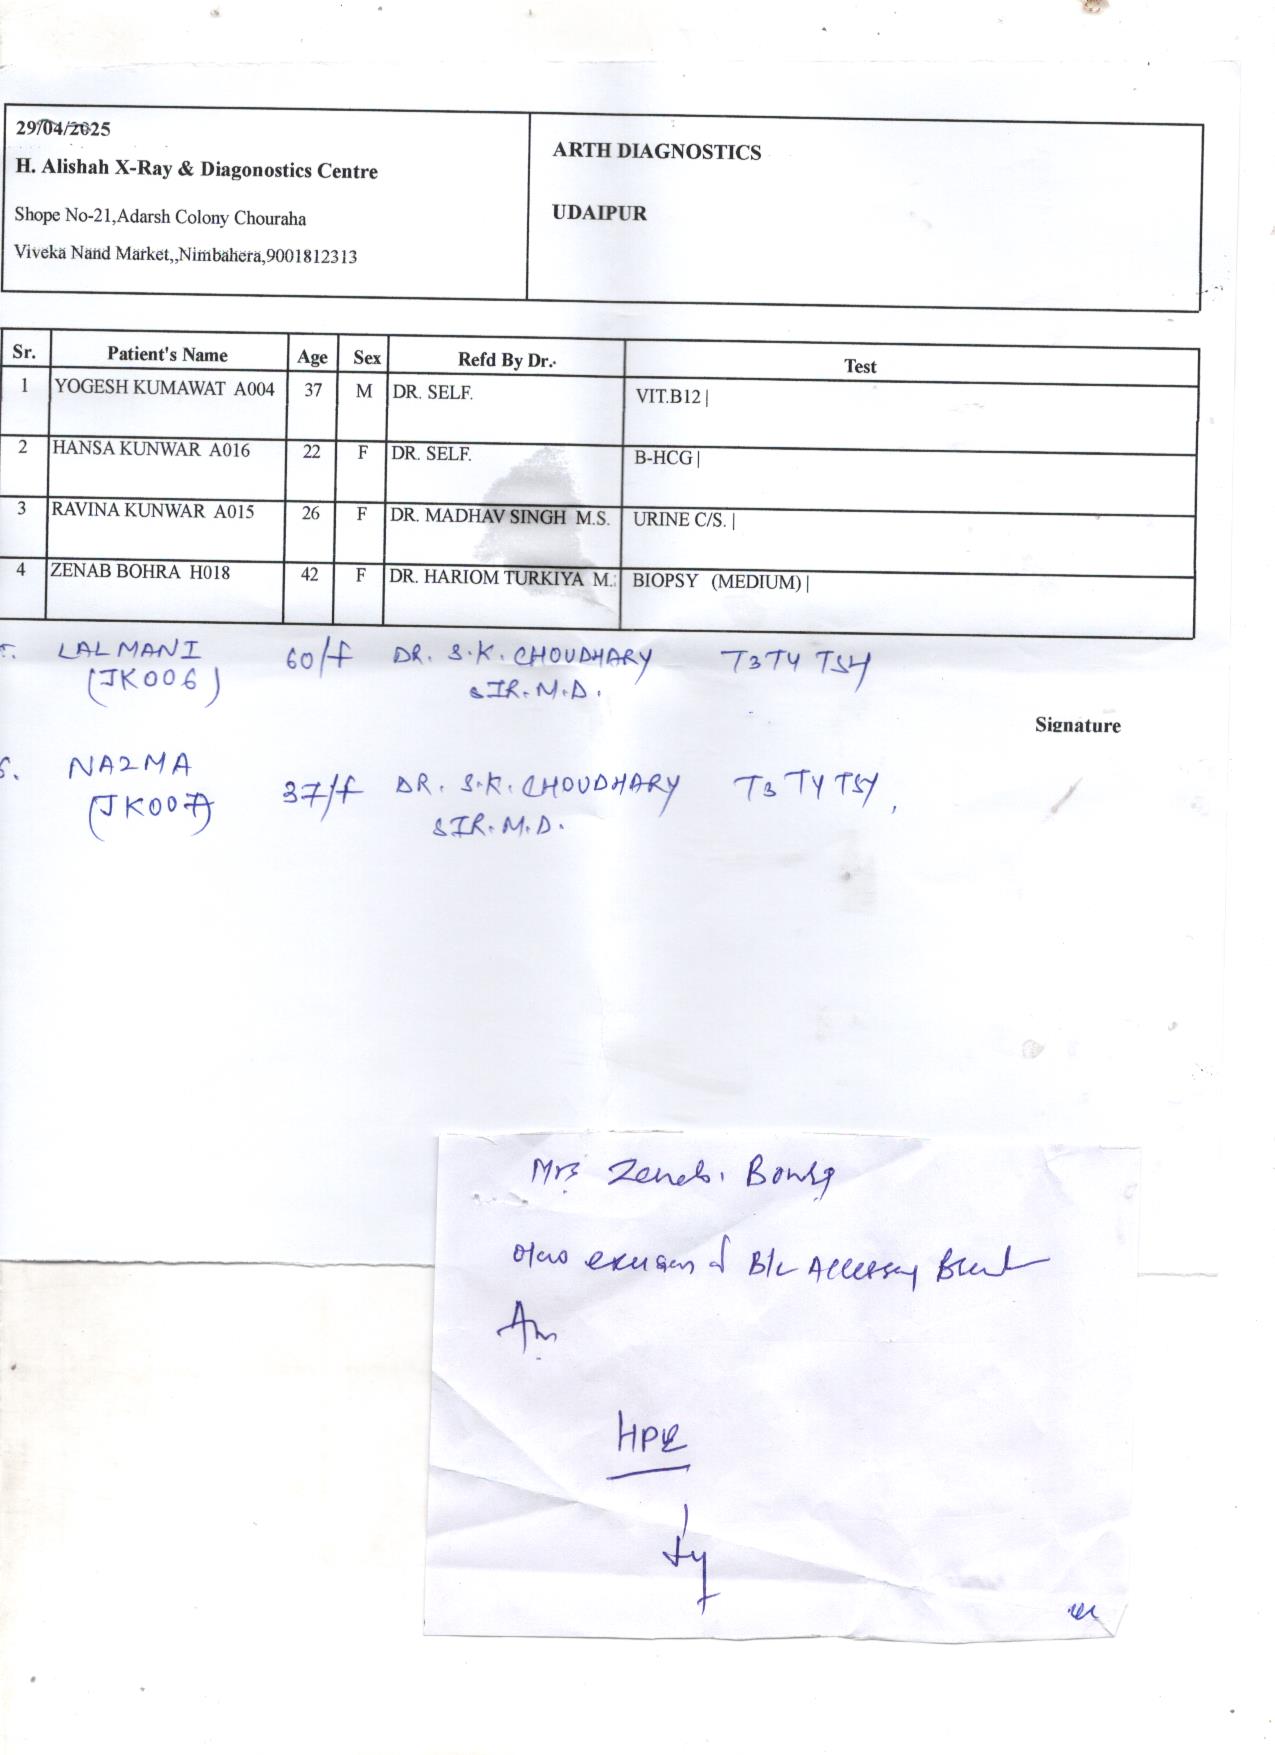 29/04/2025
H. Alishah X-Ray & Diagonostics Centre
Shope No-21,Adarsh Colony Chouraha
Viveka Nand Market,,Nimbahera,9001812313
ARTH DIAGNOSTICS
UDAIPUR
Sr. Patient's Name Age Sex Refd By Dr. Test
1 YOGESH KUMAWAT A004 37 M DR. SELF. VIT.B12|
2 HANSA KUNWAR A016 22 F DR. SELF. B-HCG|
3 RAVINA KUNWAR A015 26 F DR. MADHAV SINGH M.S. URINE C/S.|
4 ZENAB BOHRA H018 42 F DR. HARIOM TURKIYA M. BIOPSY (MEDIUM)|
LALMANI 60/f DR. S.K. CHOUDHARY T3 T4 TSH
(JK006) SIR. M.D.
Signature
6. NAZMA 37/f DR. S.K. CHOUDHARY T3 T4 TSH,
(JK007) SIR. M.D.
Mrs Zenab. 
excision of B/L Accessory Breast
HPE